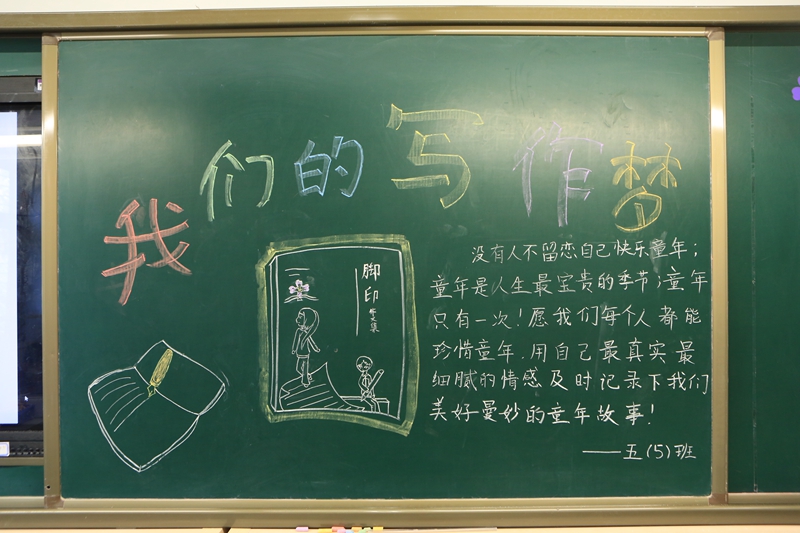 我们的写作梦
脚印
没有人不留恋自己快乐童年；
童年是人生最宝贵的季节；童年
只有一次！愿我们每个人都能
珍惜童年.用自己最真实最
细腻的情感及时记录下我们
美好曼妙的童年故事！
——五(5)班